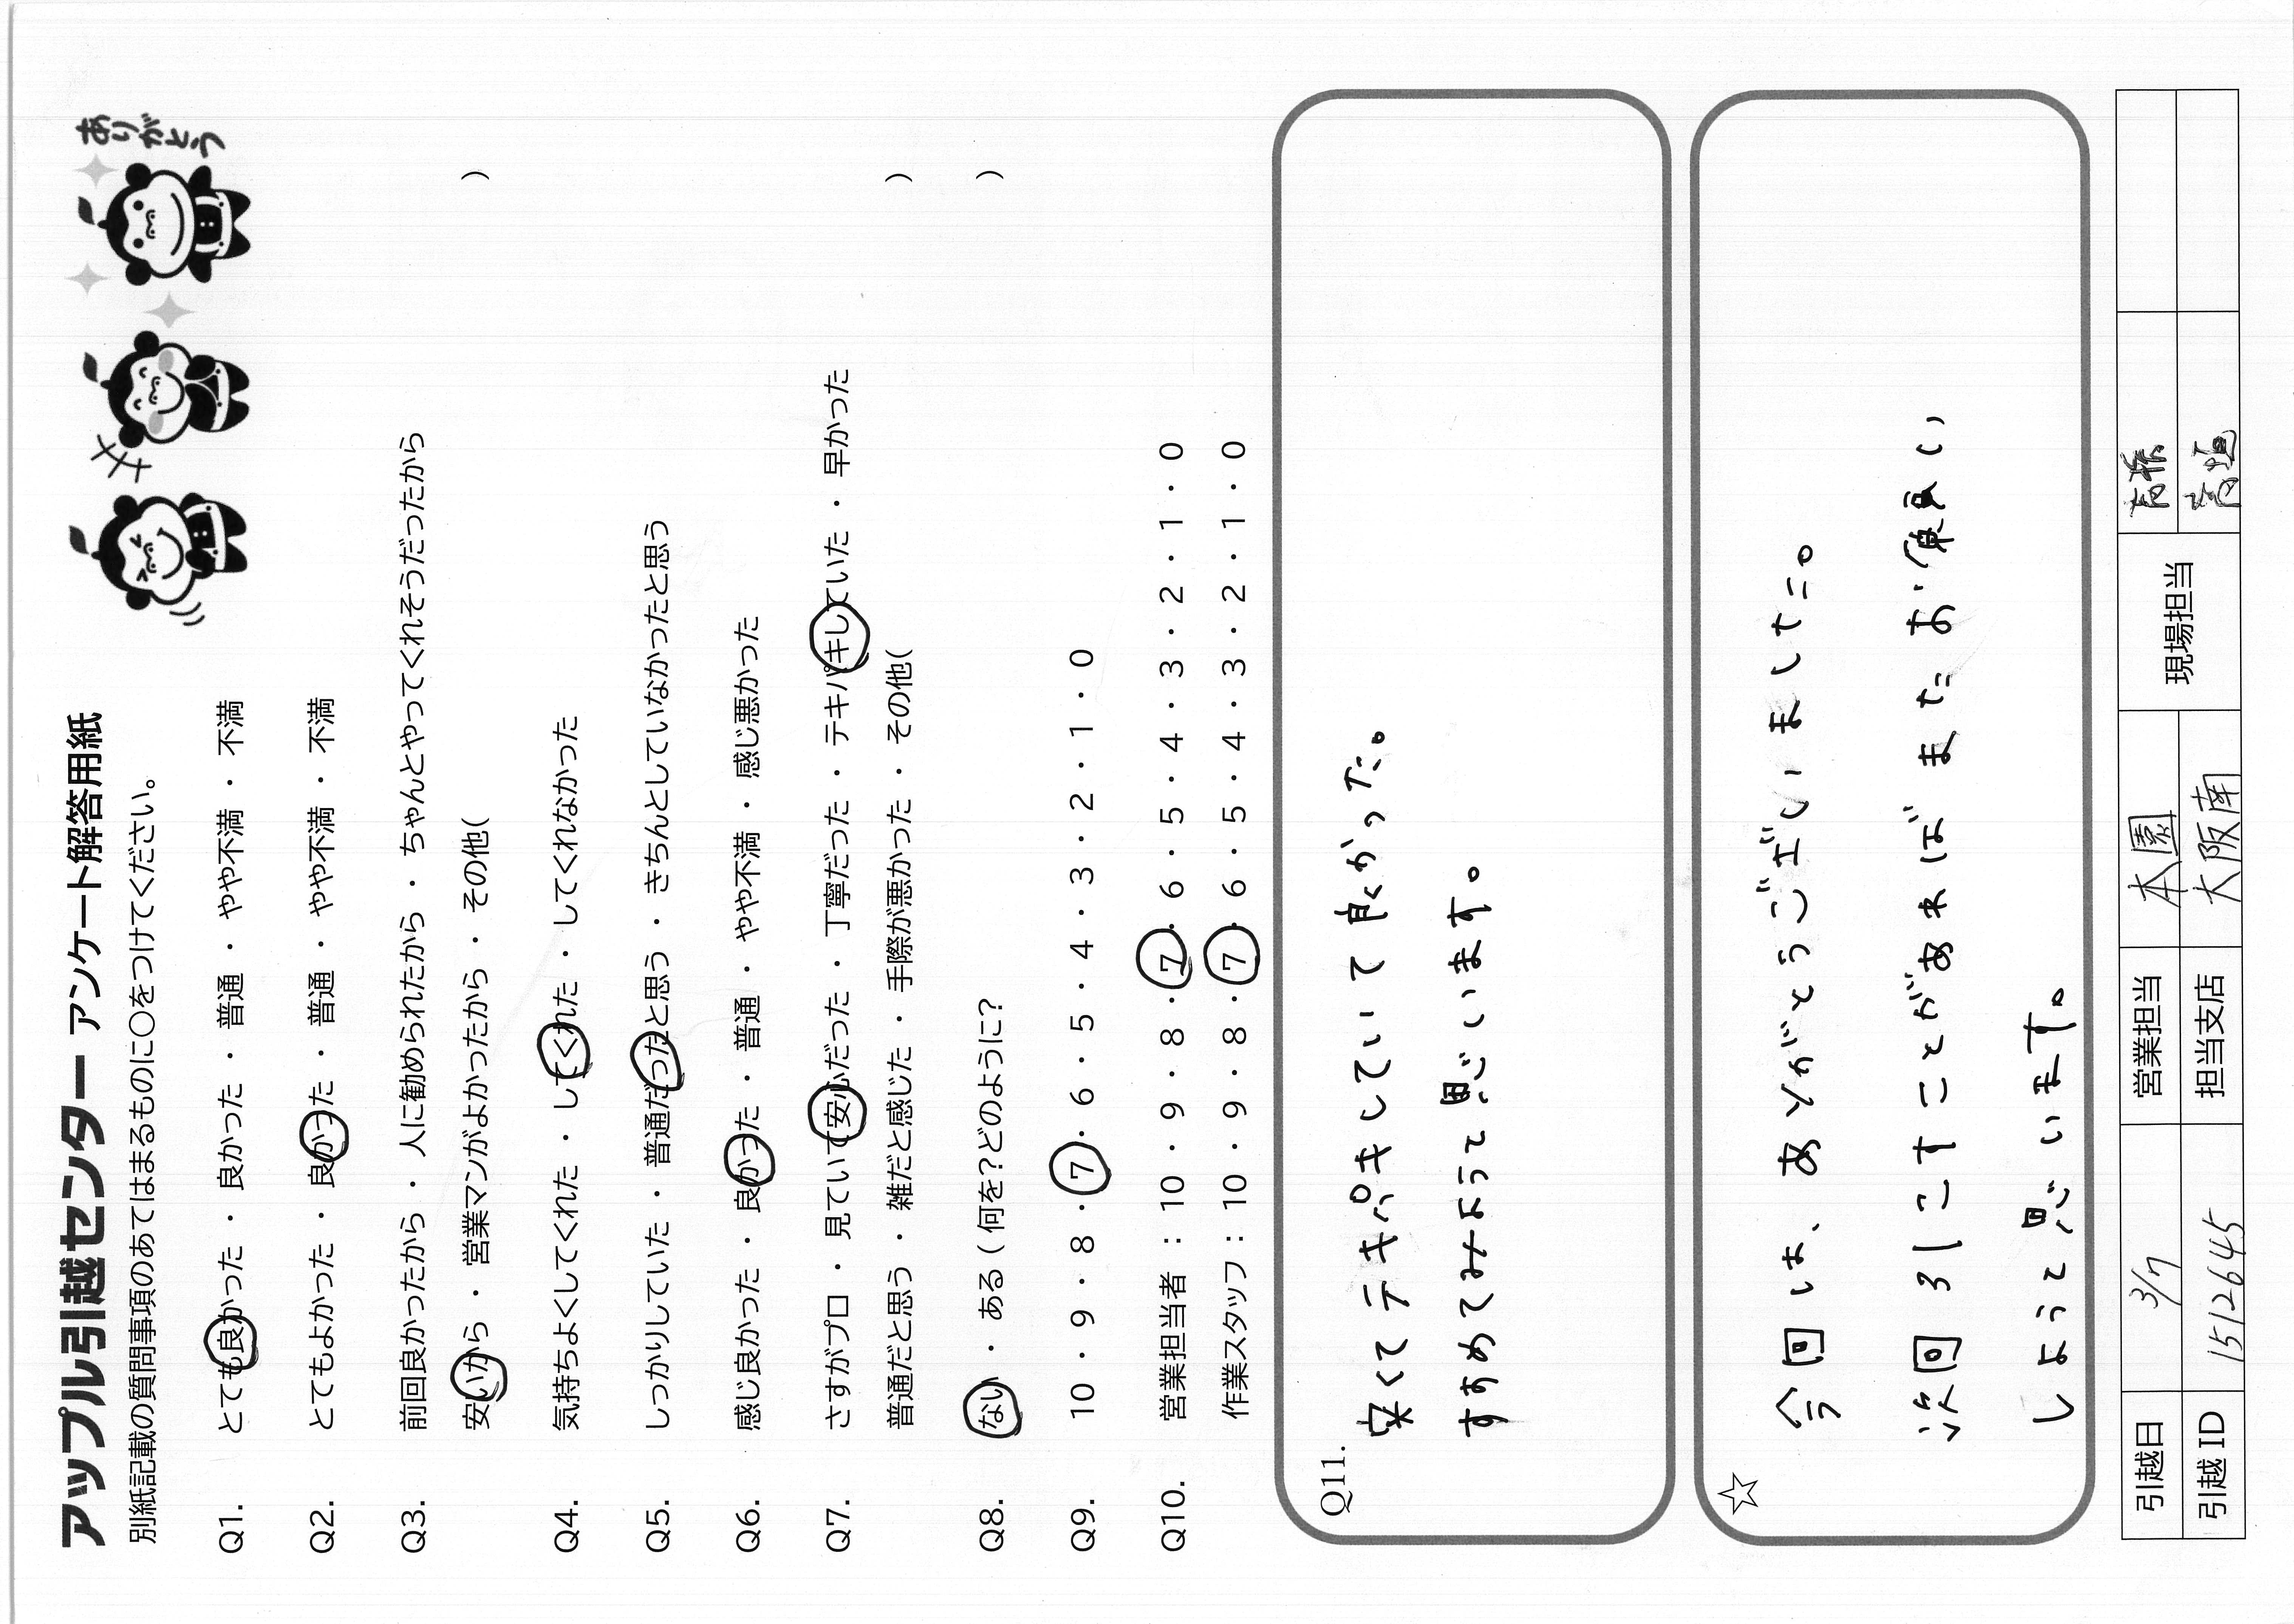 アップル引越センター アンケート解答用紙
ありがとう
別紙記載の質問事項のあてはまるものに○をつけてください。
Q1. とても良かった ・ 良かった ・ 普通 ・ やや不満 ・ 不満
Q2. とてもよかった ・ 良かった ・ 普通 ・ やや不満 ・ 不満
Q3. 前回良かったから ・ 人に勧められたから ・ ちゃんとやってくれそうだったから
安いから ・ 営業マンがよかったから ・ その他( )
Q4. 気持ちよくしてくれた ・ してくれた ・ してくれなかった
Q5. しっかりしていた ・ 普通だったと思う ・ きちんとしていなかったと思う
Q6. 感じ良かった ・ 良かった ・ 普通 ・ やや不満 ・ 感じ悪かった
Q7. さすがプロ ・ 見ていて安心だった ・ 丁寧だった ・ テキパキしていた ・ 早かった
普通だと思う ・ 雑だと感じた ・ 手際が悪かった ・ その他( )
Q8. ない ・ ある ( 何を?どのように? )
Q9. 10 ・ 9 ・ 8 ・ 7 ・ 6 ・ 5 ・ 4 ・ 3 ・ 2 ・ 1 ・ 0
Q10. 営業担当者 : 10 ・ 9 ・ 8 ・ 7 ・ 6 ・ 5 ・ 4 ・ 3 ・ 2 ・ 1 ・ 0
作業スタッフ : 10 ・ 9 ・ 8 ・ 7 ・ 6 ・ 5 ・ 4 ・ 3 ・ 2 ・ 1 ・ 0
Q11.
安くてテキパキしていて良かった。
すすめてみようと思います。
☆
今回は、ありがとうございました。
次回引こすことがあればまたお願い
しようと思います。
引越日 3/7 営業担当 本園 現場担当
引越 ID 15126645 担当支店 大阪南